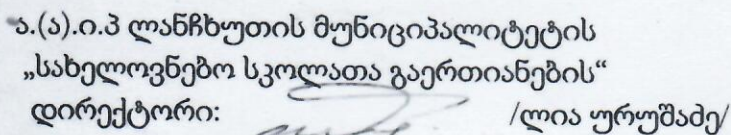 ა.(ა).ი.პ ლანჩხუთის მუნიციპალიტეტის
„სახელოვნებო სკოლათა გაერთიანების“
დირექტორი: /ლია ურუშაძე/